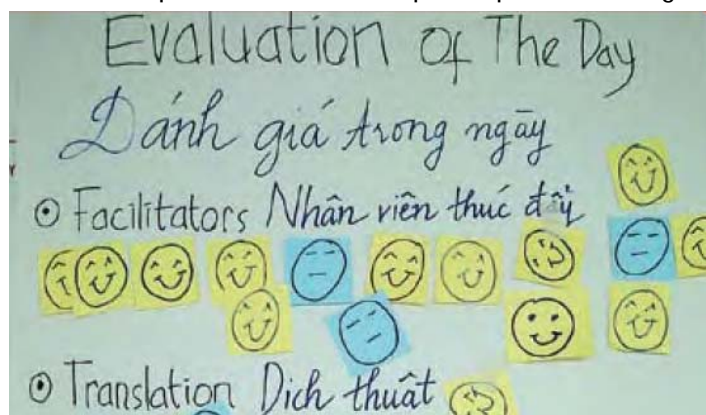 Evaluation of The Day
Đánh giá trong ngày
Facilitators Nhân viên thúc đẩy
Translation Dich thuật